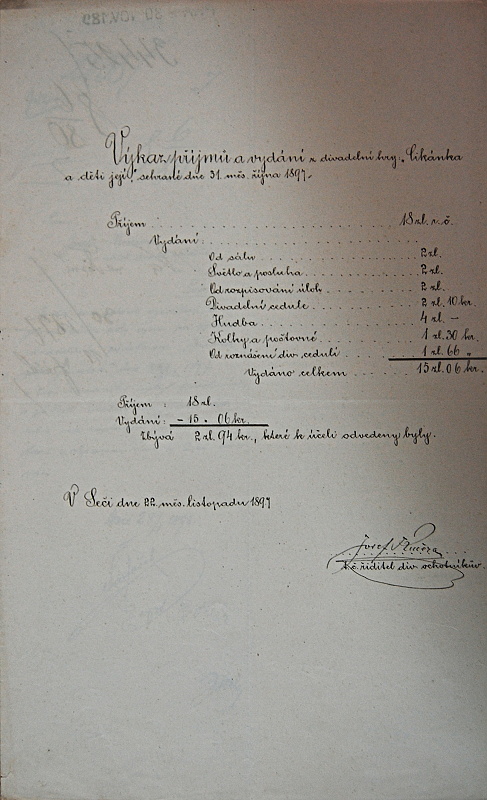 Výkaz příjmů a vydání z divadelní hry: „Cikánka
a děti její" sehrané dne 31. měs. října 1897.
Příjem . . . . . 18 zl. r. č.
Vydání: . . . . .
Od sálu . . . . . 2 zl.
Světlo a posluha . . . . . 2 zl.
Od rozpisování úloh . . . . . 2 zl.
Divadelní cedule . . . . . 2 zl. 10 kr.
Hudba . . . . . 4 zl. –
Kolky a poštovné . . . . . 1 zl. 30 kr.
Od roznášení div. cedulí . . . . . 1 zl. 66 „
Vydáno celkem . . . . . 15 zl. 06 kr.
Příjem : 18 zl.
Vydání: – 15. 06 kr.
Zbývá 2 zl. 94 kr., které k účeli odvedeny byly.
V Seči dne 22. měs. listopadu 1897
Josef
t. č. řiditel div. ochotníkův.